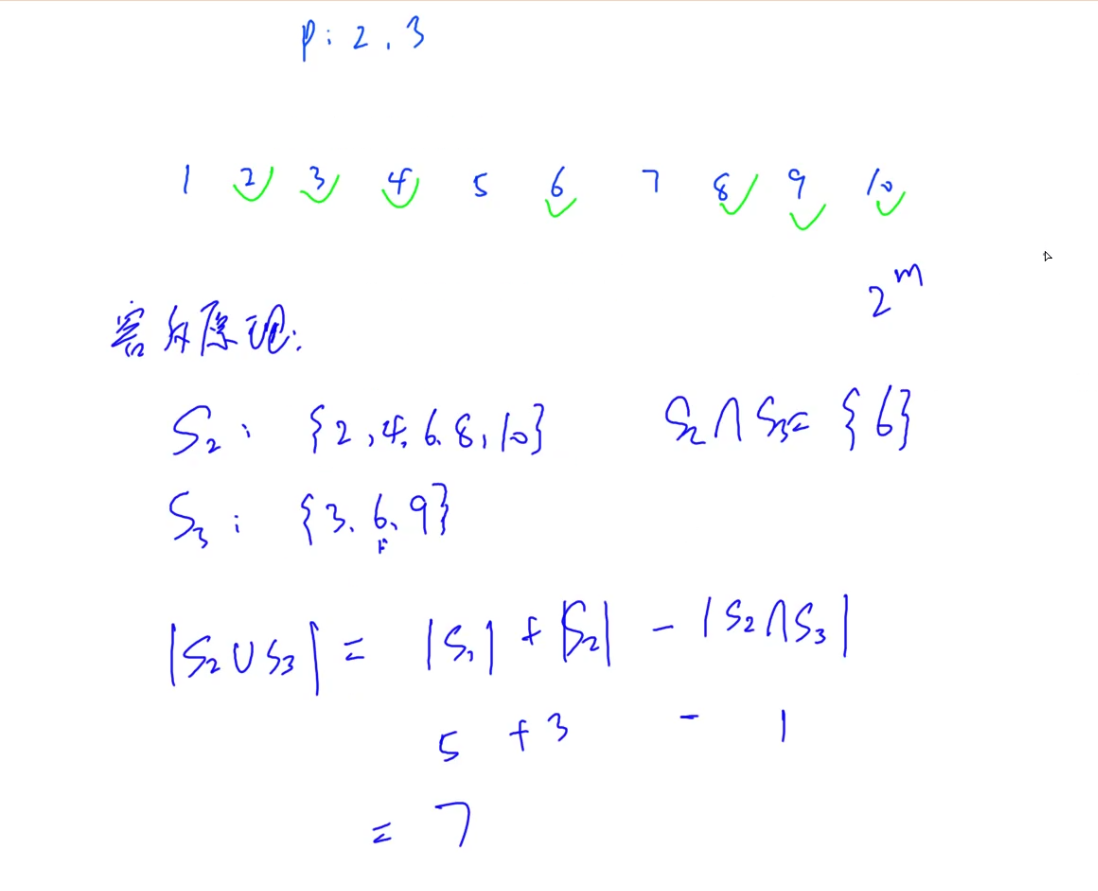 p: 2, 3
1 2 3 4 5 6 7 8 9 10
2^m
容斥原理:
S₂: {2,4,6,8,10} S₂∩S₃= {6}
S₃: {3,6,9}
|S₂∪S₃| = |S₁| + |S₂| - |S₂∩S₃|
5 + 3 - 1
= 7